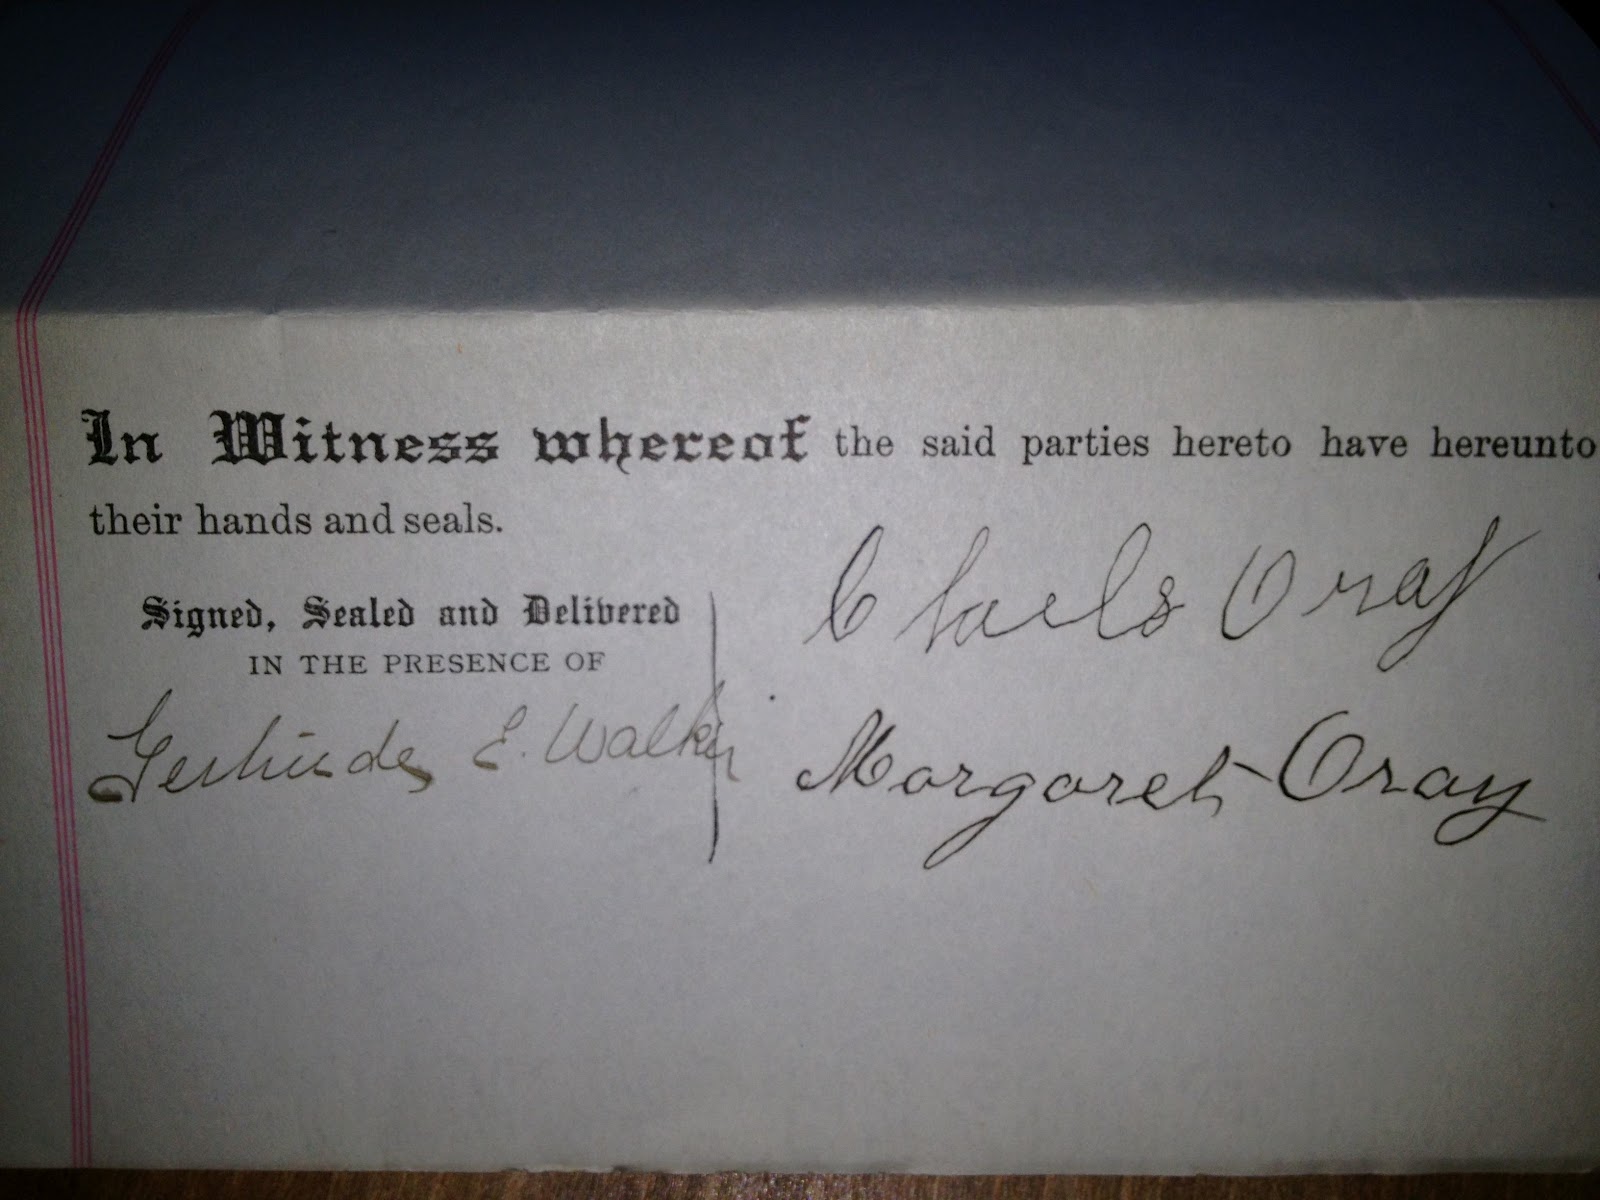 In Witness whereof the said parties hereto have hereunto
their hands and seals.
Signed, Sealed and Delivered
IN THE PRESENCE OF
Gertrude E. Walker
Chaels Oray
Margaret Oray